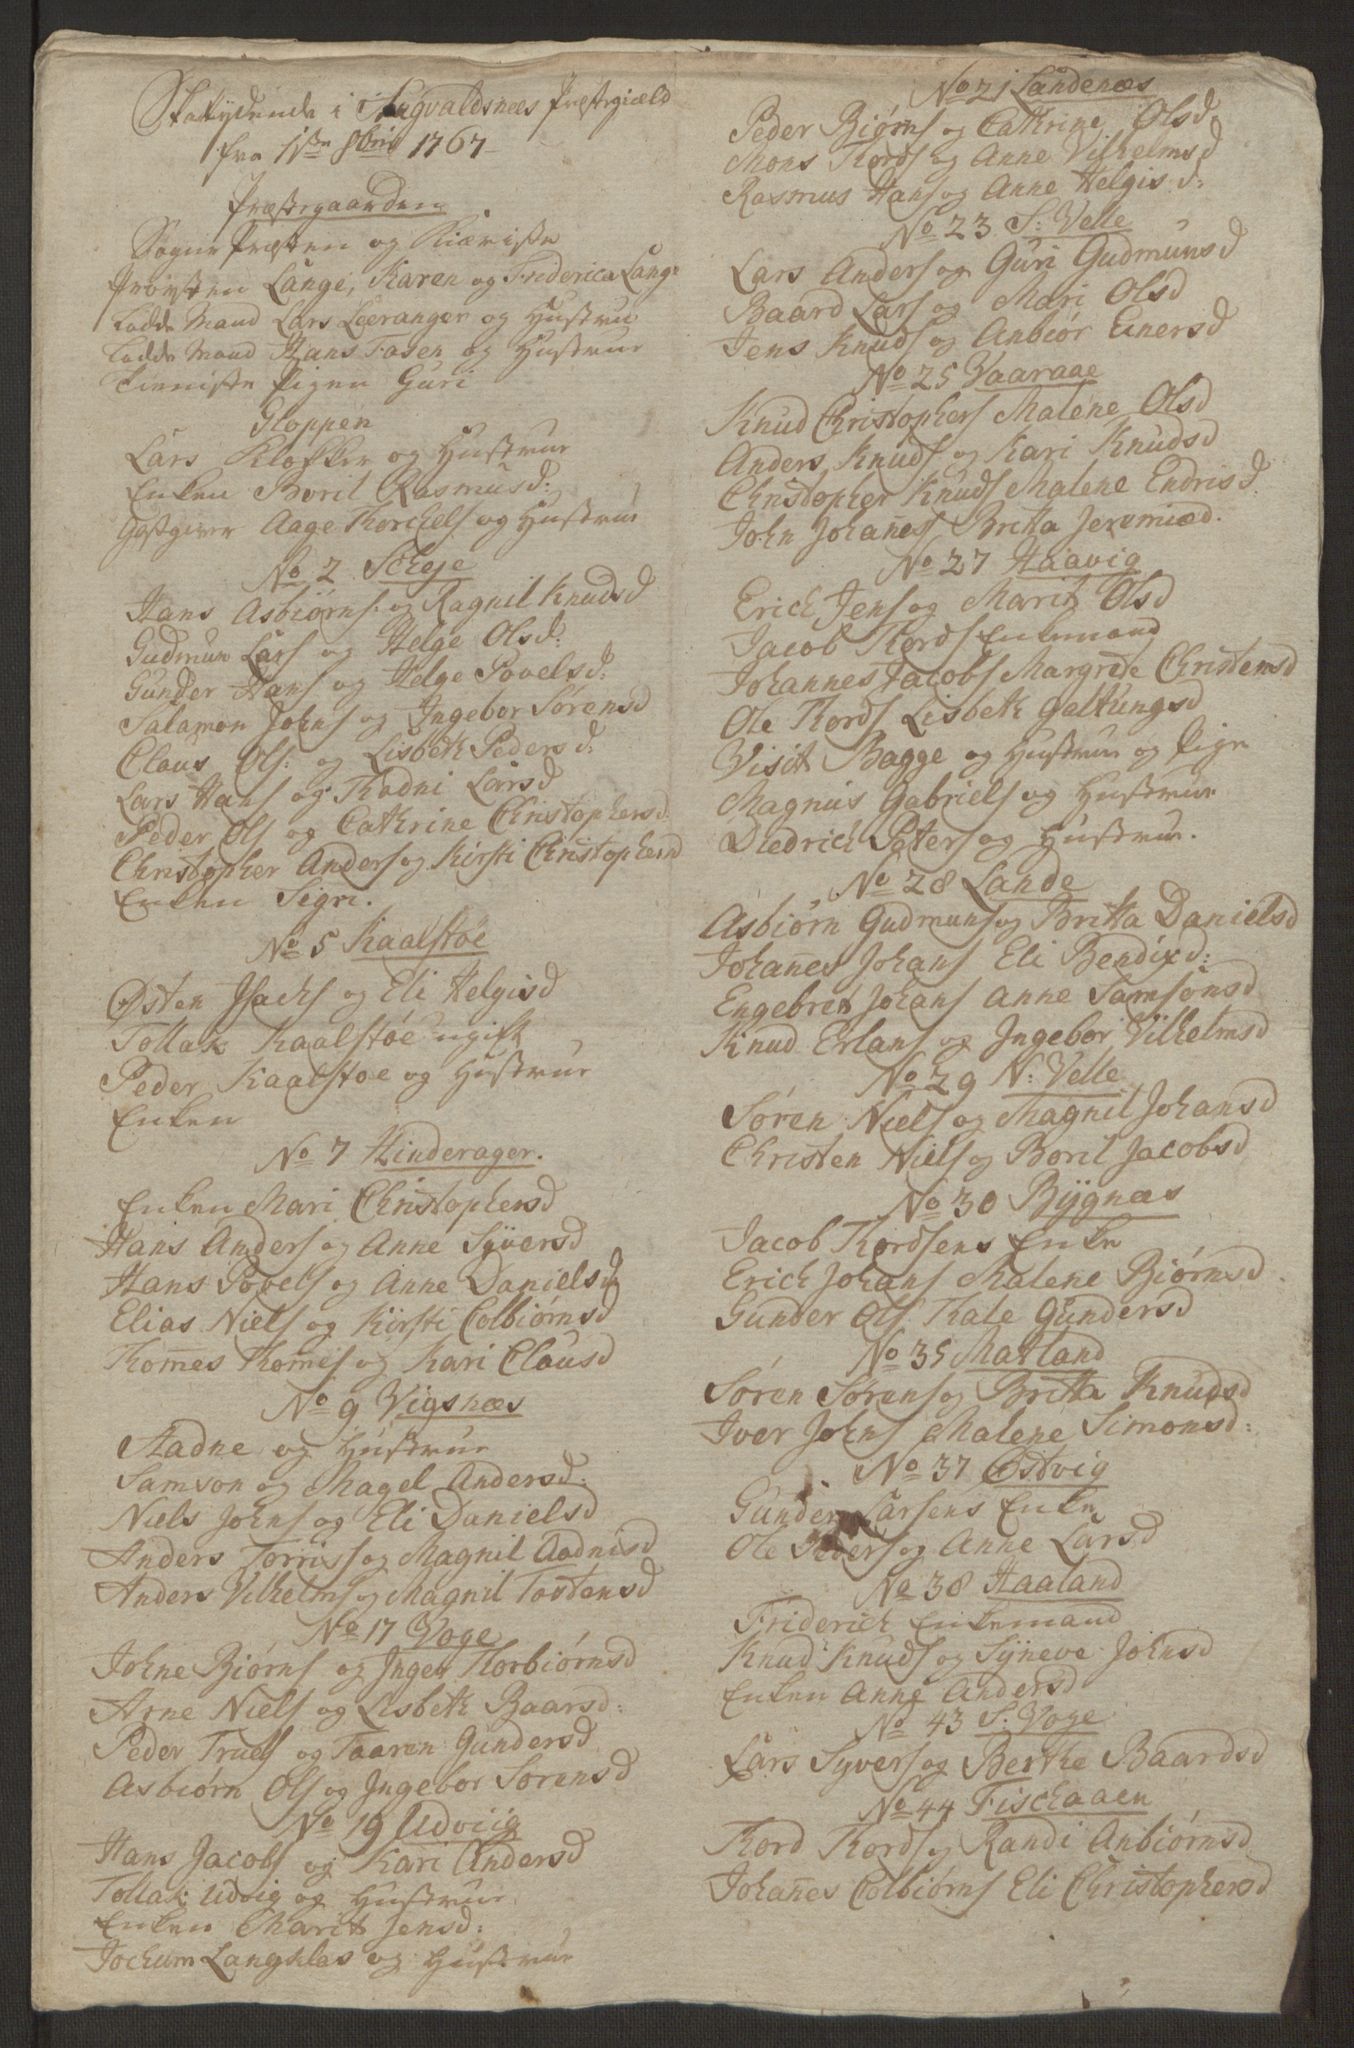 Skatydende i Augvaldsnæs Præstegield
fra 1ste 8bris 1767
Præstegaarden
Sogne Præsten og Kiæriste
Provsten Lange, Karen og Friderica Lange
Ladde Mand Lars Leeranger og Hustrue
Ladde Mand Hans Fosen og Hustrue
Tieniste Pigen Guri
Gloppen
Lars Klokker og Hustrue
Enken Boril Rasmusd:
Gestgiver Aage Thorchels og Hustrue
No 2 Scheje
Hans Asbiørns: og Ragnil Knudsd
Gudmun Lars og Helge Olsd:
Gunder Hans og Helge Povelsd:
Salamon Johns og Ingebor Sørensd
Claus Ols: og Lisbeth Pedersd:
Lars Hans og Thadni Larsd
Peder Ols og Cathrine Christophersd
Christopher Anders og Kirsti Christophersd
Enken Sigri.
No 5 Kaalstøe
Østen Isachs og Eli Helgisd
Tollak Kaalstøe ugift
Peder Kaalstoe og Hustrue
Enken
No 7 Hinderager.
Enken Mari Christophersd
Hans Anders og Anne Syversd
Hans Povels og Anne Danielsd
Elias Niels og Kirsti Colbiørnsd
Thomes Thomes og Kari Clausd
No 9 Vigsnæs
Aadne og Hustrue
Samson og Magel Andersd:
Niels Johns og Eli Danielsd
Anders Torris og Magnil Aadnisd
Anders Vilhelms og Magnil Tostensd
No 17 Voge
Johne Biørns og Inger Thorbiørnsd
Arne Niels og Lisbeth Baarsd:
Peder Truels og Taaren Gundersd
Asbiørn Ols og Ingebor Sørensd
No 19 Udviig
Hans Jacobs og Kari Andersd
Tollak Udvig og Hustrue
Enken Marit Jensd:
Jochum Langhlas og Hustrue
No 21 Landenæs
Peder Biørns og Cathrine Olsd
Mons Thords og Anne Vilhelmsd
Rasmus Hans og Anne Helgisd:
No 23 S: Velle
Lars Anders og Guri Gudmunsd
Baard Lars og Mari Olsd
Jens Knuds og Anbiør Einersd
No 25 Vaaraae
Knud Christophers Malene Olsd
Anders Knuds og Kari Knudsd
Christopher Knuds Malene Endrisd
John Johañes Britta Jeremiæd.
No 27 Haavig
Erich Jens og Marit Olsd
Jacob Thords Enkemand
Johannes Jacobs Margrede Christensd
Ole Thords Lisbeth Galtungsd
Visit Bagge og Hustrue og Pige
Magnus Gabriels og Hustrue
Diedrich Peters og Hustrue.
No 28 Lande
Asbiørn Gudmuns og Britta Danielsd
Johañes Johans Eli Bendixd:
Engebret Johans Anne Samsonsd
Knud Erlans og Ingebor Vilhelmsd
No 29 N: Velle
Søren Niels og Magnil Johansd
Christen Niels og Boril Jacobsd
No 30 Bygnæs
Jacob Thordsens Enke
Erich Johans Malene Biørnsd
Gunder Ols Kale Gundersd
No 35 Matland
Søren Sørens og Britta Knudsd
Iver Johns Malene Simonsd:
No 37 Østvig
Gunder Larsens Enke
Ole og Anne Larsd
No 38 Haaland
Friderich Enkemand
Knud Knuds og Syneve Johnsd
Enken Anne Andersd
No 43 S: Voge
Lars Syvers og Berthe Baardsd
No 44 Fischaaen
Thord Thords og Randi Anbiørnsd
Johañes Colbiørns Eli Christophersd